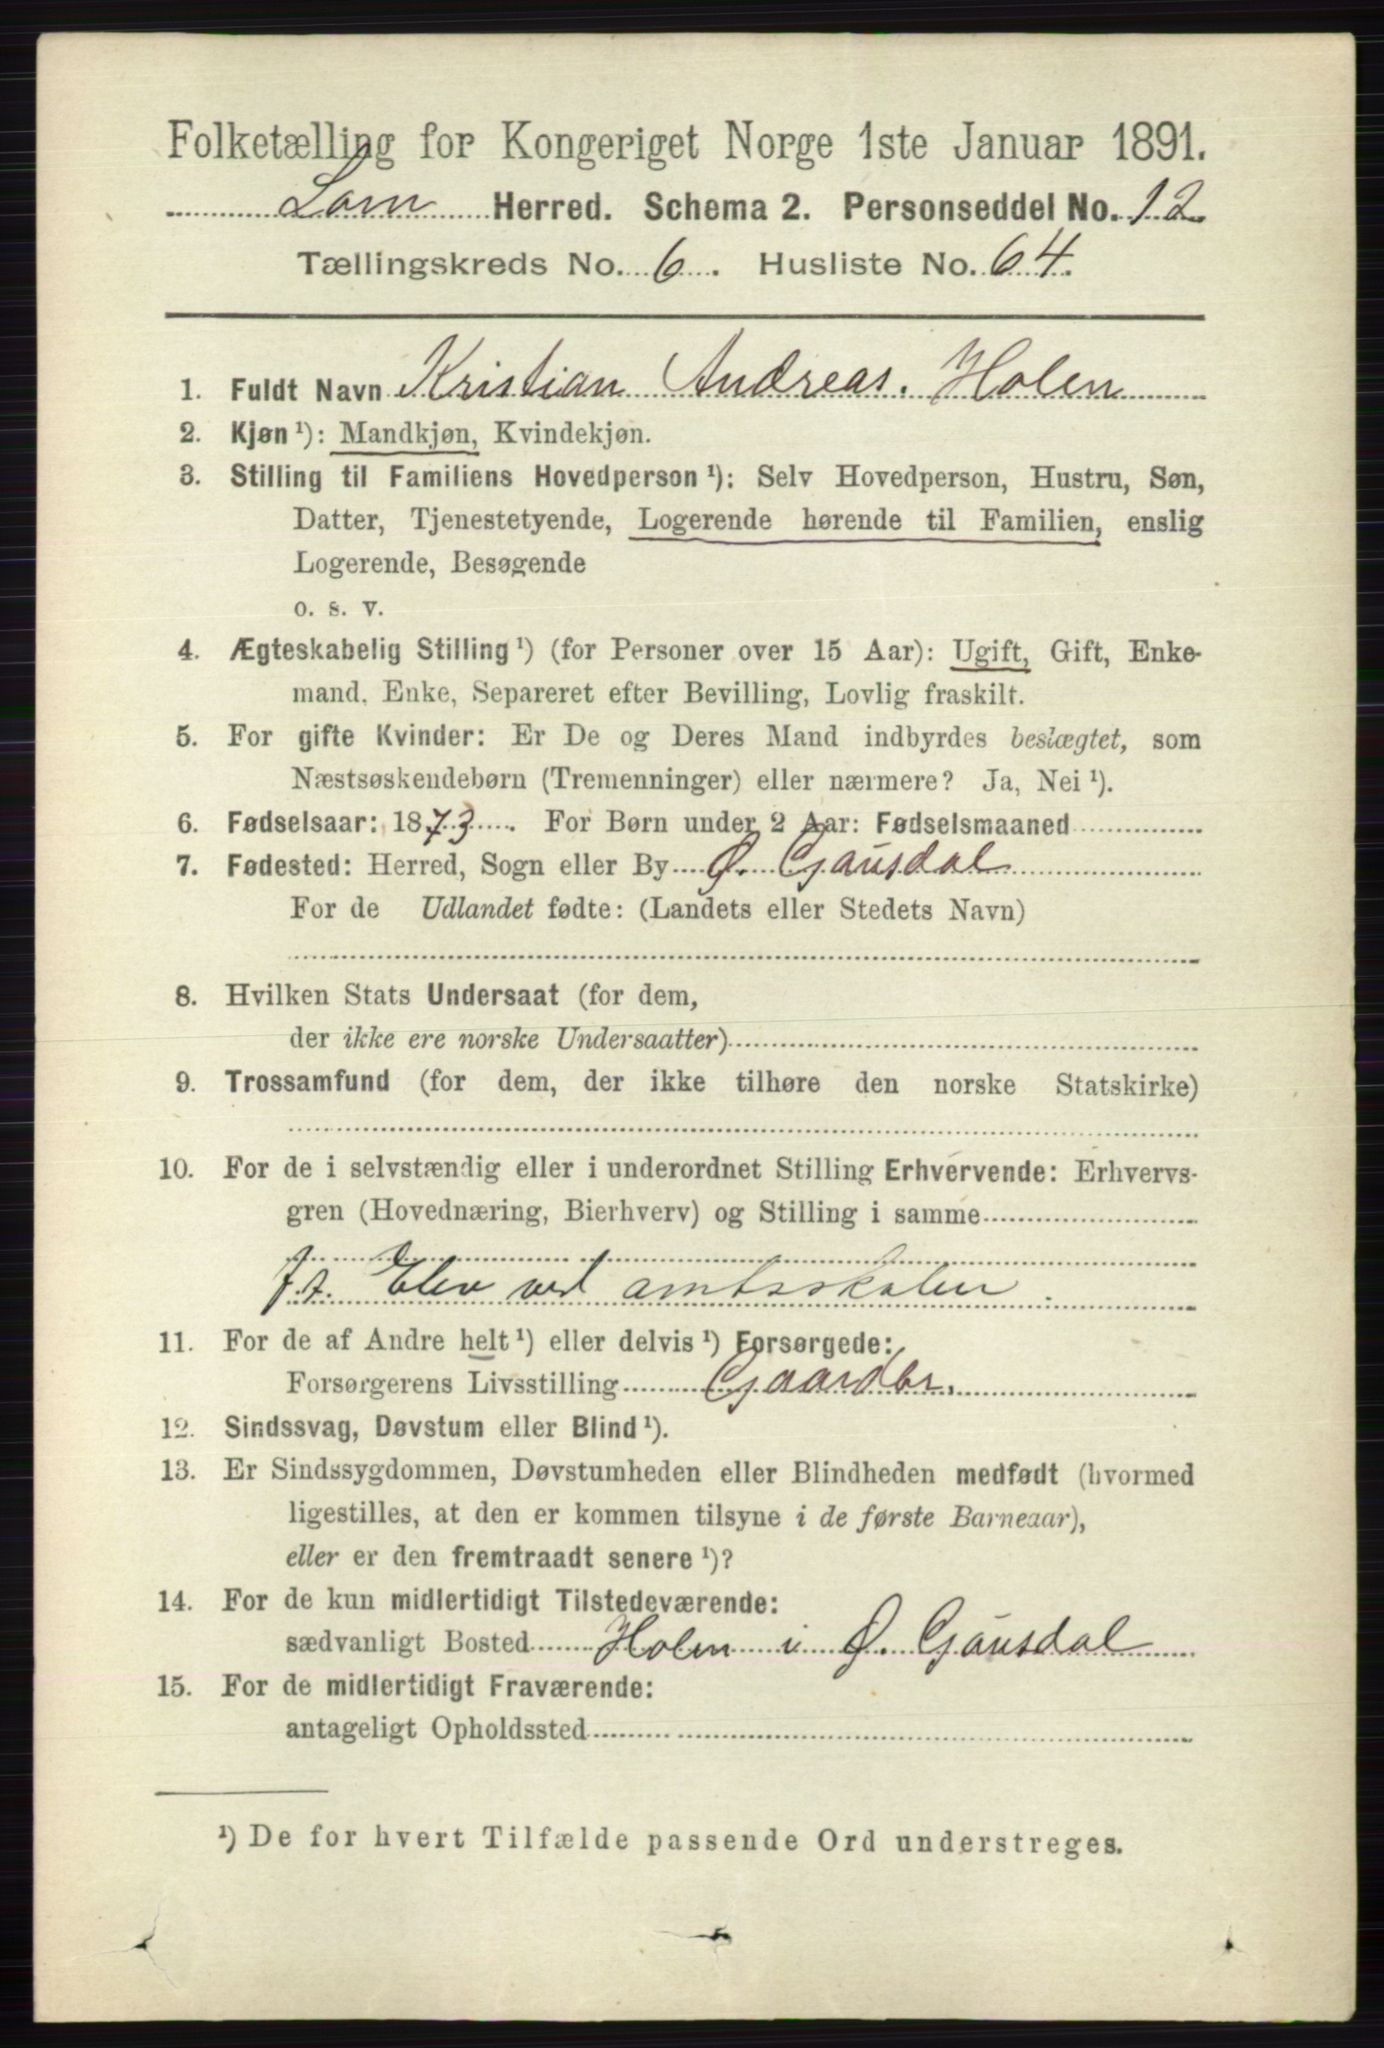 Folketælling for Kongeriget Norge 1ste Januar 1891.
Lom Herred. Schema 2. Personseddel No. 12
Tællingskreds No. 6. Husliste No. 64.
1. Fuldt Navn Kristian Andreas. Holen
2. Kjøn ¹): Mandkjøn, Kvindekjøn.
3. Stilling til Familiens Hovedperson ¹): Selv Hovedperson, Hustru, Søn,
Datter, Tjenestetyende, Logerende hørende til Familien, enslig
Logerende, Besøgende
o. s. v.
4. Ægteskabelig Stilling ¹) (for Personer over 15 Aar): Ugift, Gift, Enke-
mand, Enke, Separeret efter Bevilling, Lovlig fraskilt.
5. For gifte Kvinder: Er De og Deres Mand indbyrdes beslægtet, som
Næstsøskendebørn (Tremenninger) eller nærmere? Ja, Nei ¹).
6. Fødselsaar: 1873. For Børn under 2 Aar: Fødselsmaaned
7. Fødested: Herred, Sogn eller By Ø. Gausdal
For de Udlandet fødte: (Landets eller Stedets Navn)
8. Hvilken Stats Undersaat (for dem,
der ikke ere norske Undersaatter)
9. Trossamfund (for dem, der ikke tilhøre den norske Statskirke)
10. For de i selvstændig eller i underordnet Stilling Erhvervende: Erhvervs-
gren (Hovednæring, Bierhverv) og Stilling i samme
f. t. Elev ved amtsskolen.
11. For de af Andre helt ¹) eller delvis ¹) Forsørgede:
Forsørgerens Livsstilling Gaardbr.
12. Sindssvag, Døvstum eller Blind ¹).
13. Er Sindssygdommen, Døvstumheden eller Blindheden medfødt (hvormed
ligestilles, at den er kommen tilsyne i de første Barneaar),
eller er den fremtraadt senere ¹)?
14. For de kun midlertidigt Tilstedeværende:
sædvanligt Bosted Holen i Ø. Gausdal
15. For de midlertidigt Fraværende:
antageligt Opholdssted
¹) De for hvert Tilfælde passende Ord understreges.